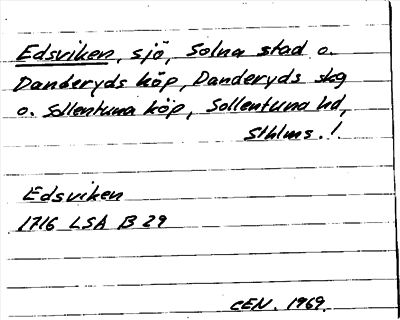 Edsviken, sjö, Solna stad o.
Danderyds köp, Danderyds skg
o. Sollentuna köp, Sollentuna hd,
Sthlms. l.
Edsviken
1716 LSA B 29
CEN. 1969.